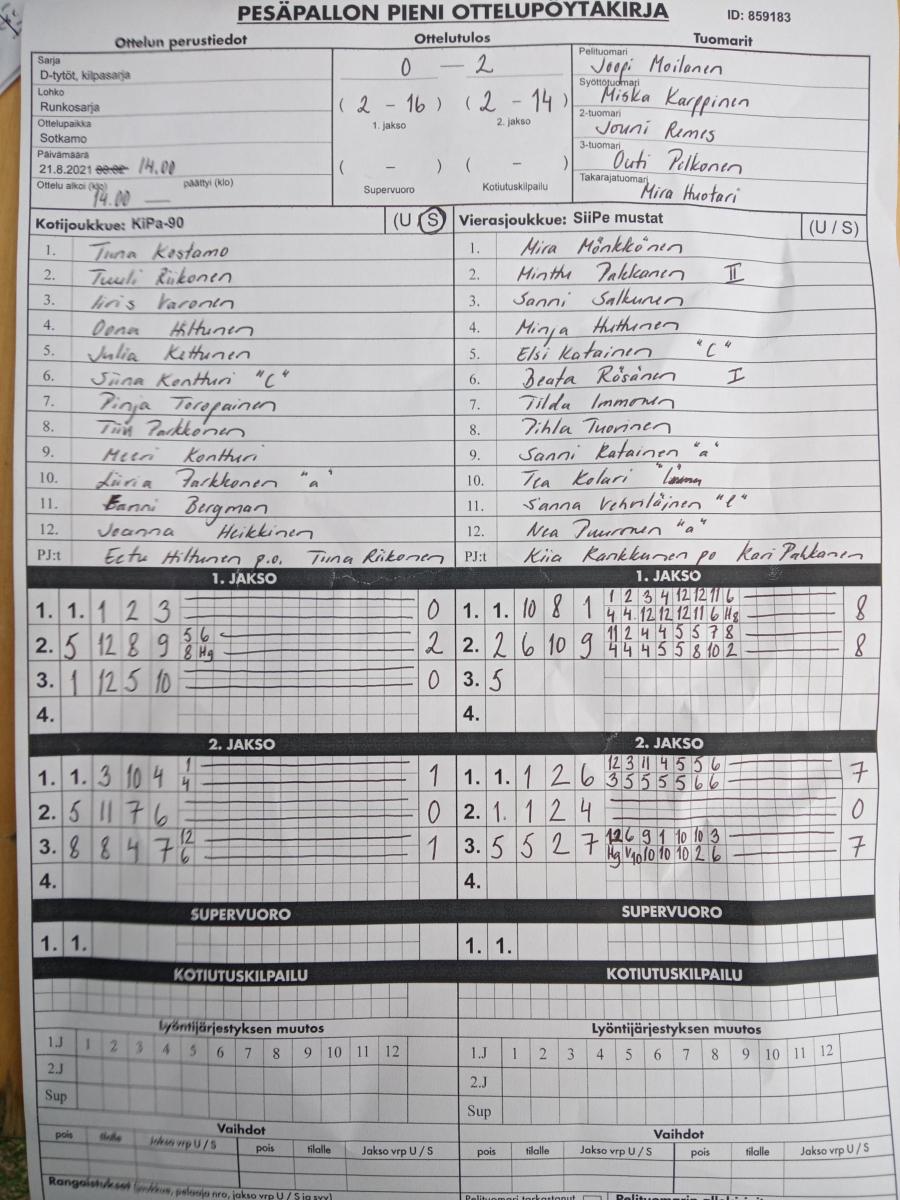 PESÄPALLON PIENI OTTELUPÖYTÄKIRJA
ID: 859183
Ottelun perustiedot
Ottelutulos
Tuomarit
Sarja
D-tytöt, kilpasarja
Lohko
Runkosarja
Ottelupaikka
Sotkamo
Päivämäärä
21.8.2021 14.00
Ottelu alkoi (klo) päättyi (klo)
14.00 —
0 — 2
( 2 - 16 ) ( 2 - 14 )
1. jakso 2. jakso
( - ) ( - )
Supervuoro Kotiutuskilpailu
Pelituomari
Joopi Moilanen
Syöttötuomari
Miska Karppinen
2-tuomari
Jouni Remes
3-tuomari
Outi Pelkonen
Takarajatuomari
Mira Huotari
Kotijoukkue: KiPa-90 (U / S)
1. Tuna Kostamo
2. Tuuli Riikonen
3. Iiris Varonen
4. Oona Hiltunen
5. Julia Kettunen
6. Siina Kontturi "C"
7. Pinja Toropainen
8. Tiia Parkkonen
9. Meeri Kontturi
10. Parkkonen "a"
11. Bergman
12. Joanna Heikkinen
PJ:t Eetu Hiltunen p.o. Tiina Riikonen
Vierasjoukkue: SiiPe mustat (U / S)
1. Mira Mönkkönen
2. Minttu Pakkanen II
3. Sanni Salkunen
4. Minja Huttunen
5. Elsi Katainen "C"
6. Beata Räsänen I
7. Tilda Immonen
8. Pihla Tuorinen
9. Sanni Katainen "a"
10. Tea Kolari
11. Sanna Vehviläinen "l"
12. Nea Puurunen "a"
PJ:t Kiia Kankkunen po Kari Pakkanen
1. JAKSO
1. 1. 1 2 3 0
2. 5 12 8 9 5 6 2
8 Hg
3. 1 12 5 10 0
4.
1. JAKSO
1. 1. 10 8 1 1 2 3 4 12 12 11 6 8
4 4 12 12 12 11 6 Hg
2. 2 6 10 9 11 2 4 4 5 5 7 8 8
4 4 4 5 5 8 10 2
3. 5
4.
2. JAKSO
1. 1. 3 10 4 1 1
4
2. 5 11 7 6 0
3. 8 8 4 7 12 1
6
4.
2. JAKSO
1. 1. 1 2 6 12 3 11 4 5 5 6 7
3 5 5 5 5 6 6
2. 1. 1 2 4 0
3. 5 5 2 7 12 6 9 1 10 10 3 7
Hg V10 10 10 10 2 6
4.
SUPERVUORO
1. 1.
SUPERVUORO
1. 1.
KOTIUTUSKILPAILU
KOTIUTUSKILPAILU
Lyöntijärjestyksen muutos
1.J 1 2 3 4 5 6 7 8 9 10 11 12
2.J
Sup
Lyöntijärjestyksen muutos
1.J 1 2 3 4 5 6 7 8 9 10 11 12
2.J
Sup
Vaihdot
pois tilalle Jakso vrp U / S pois tilalle Jakso vrp U / S
Vaihdot
pois tilalle Jakso vrp U / S pois tilalle Jakso vrp U / S
Rangaistukset (joukkue, pelaaja nro, jakso vrp U / S ja syy)